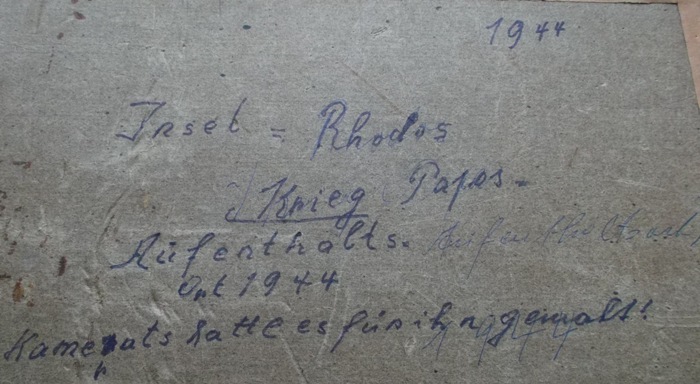 1944
Insel = Rhodos
Krieg Papas -
Aufenthalts-
Ort 1944
Kamerats hatte es für ihn gemalt!